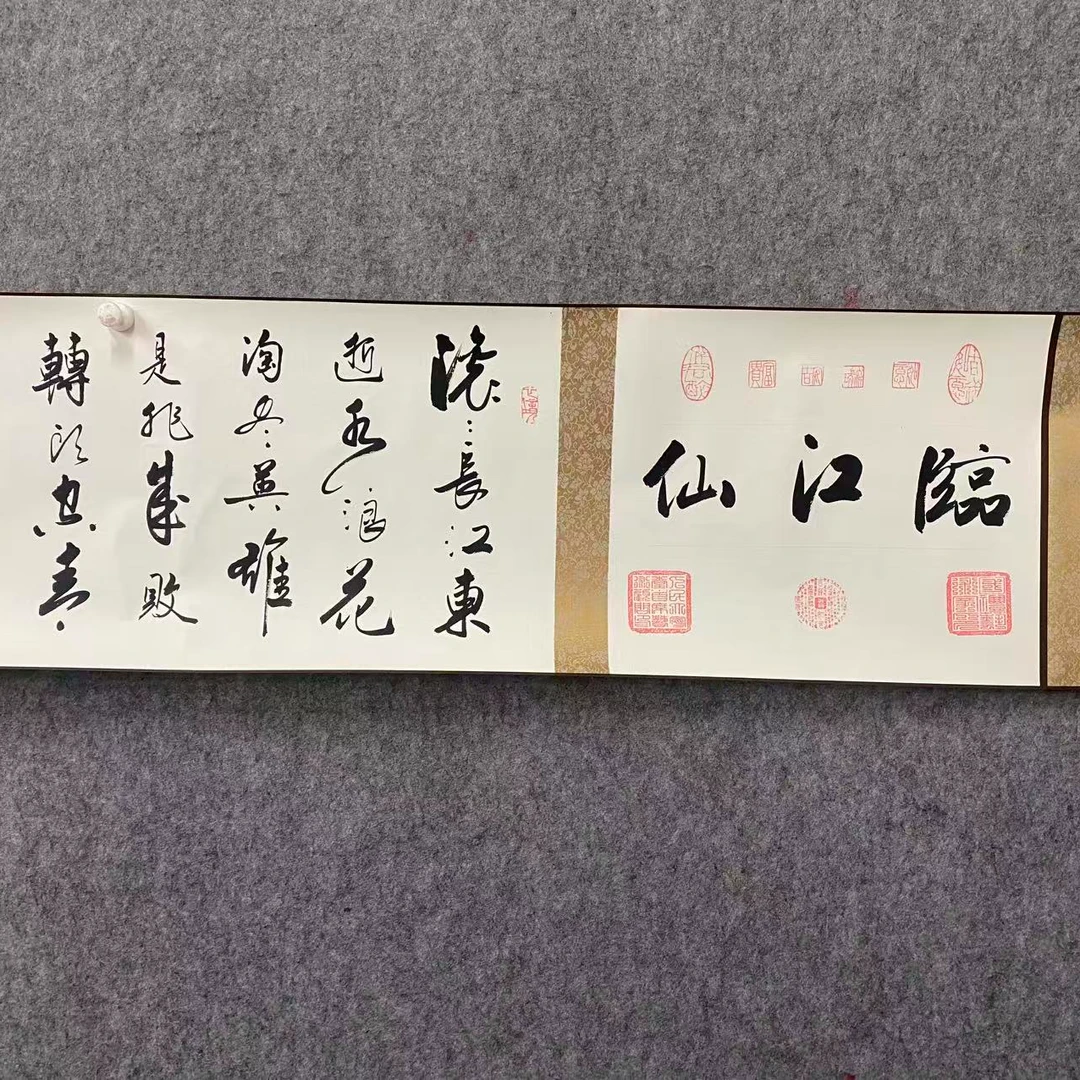 臨江仙
滚滚長江東
逝水浪花
淘尽英雄
是非成敗
轉頭空青